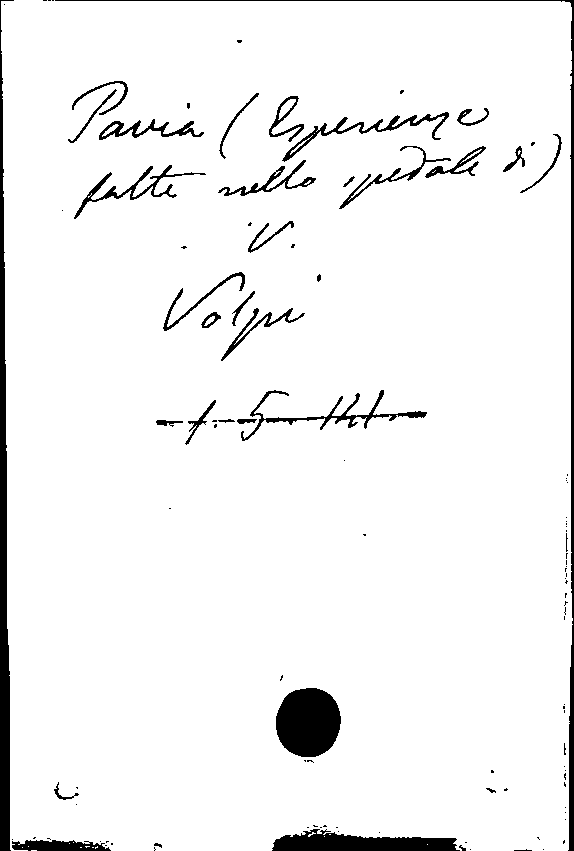 Pavia (Esperienze
fatte nello spedale di)
V.
Volpi
1. 5. 141.